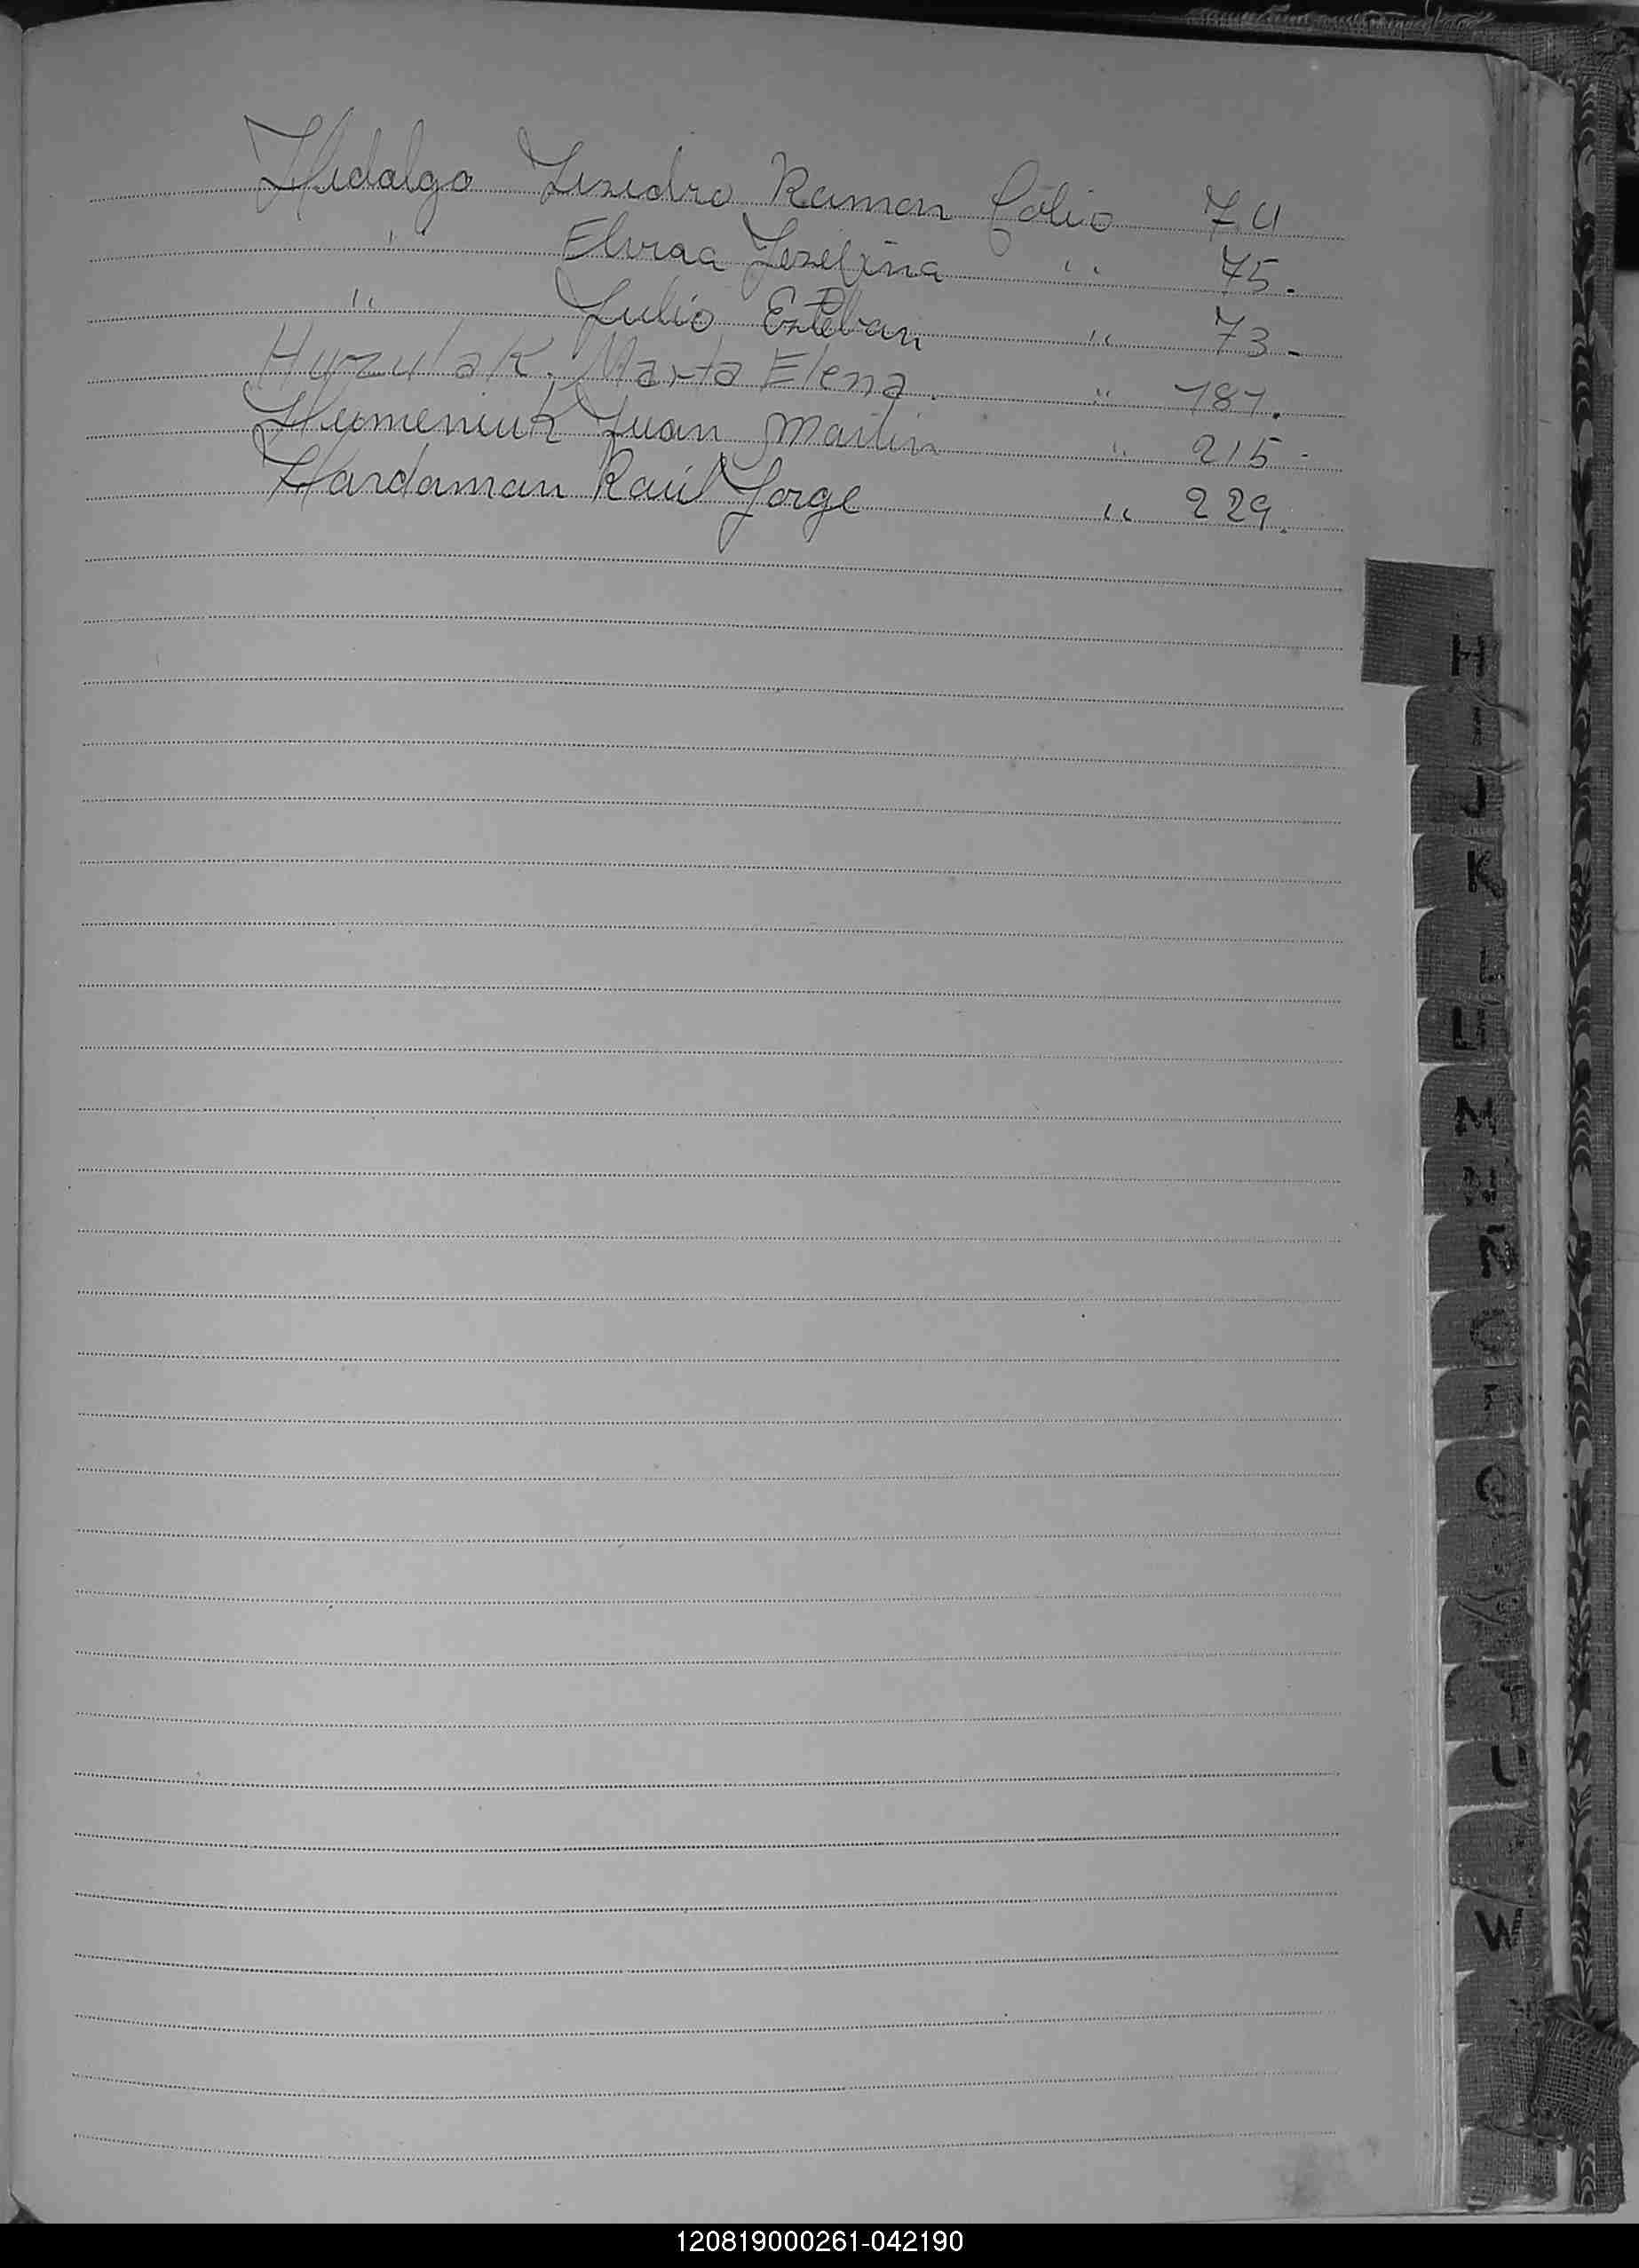 Hidalgo Lisidro Ramon folio 74
" Elvraa Josefina " 75.
" Julio Esteban " 73-
Hyrzulak, Marta Elena. " 187.
Humeniuk Juan Martin " 215-
Hardaman Raúl Jorge " 229.
H
I
J
K
L
M
N
Ñ
O
P
Q
T
U
W
120819000261-042190